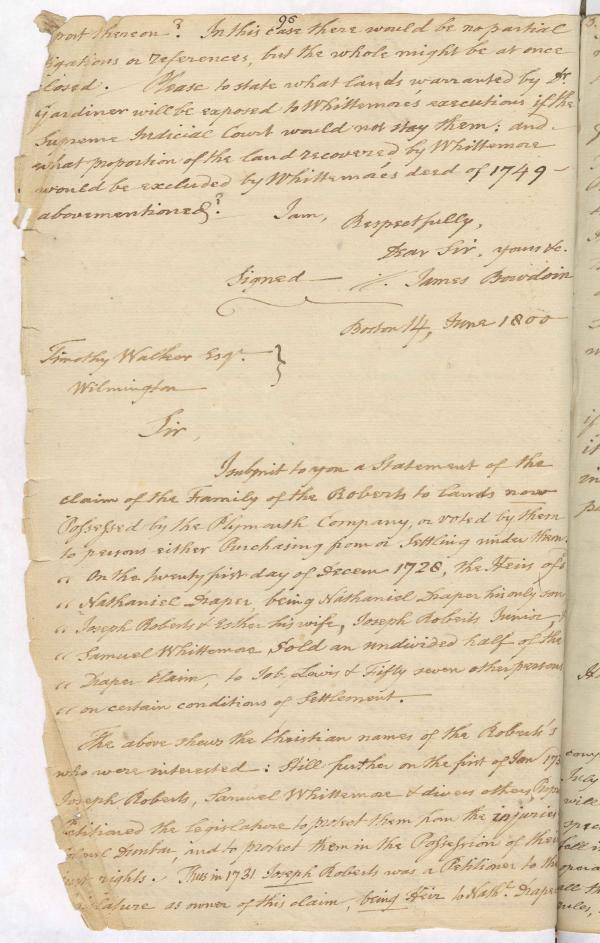 96
port thereon? In this case there would be no partial
igations or references, but the whole might be at once
losed. Please to state what lands warranted by Dr.
Gardiner will be exposed to Whittemore's executions if the
Supreme Judicial Court would not stay them: and
what proportion of the land recovered by Whittemore
would be excluded by Whittemore's deed of 1749 –
abovementioned? I am, Respectfully,
Dear Sir, yours &c.
Signed — James Bowdoin
Boston 14, June 1800
Timothy Walker Esqr. }
Wilmington
Sir,
I submit to you a Statement of the
claim of the Family of the Roberts to lands now
Possessed by the Plymouth Company, or voted by them
to persons either Purchasing from or Settling under them.
" On the twenty first day of Decem 1728, the Heirs of
" Nathaniel Draper, being Nathaniel Draper his only son
" Joseph Roberts & Esther his wife, Joseph Roberts Junior, &
" Samuel Whittemore Sold an undivided half of the
" Draper Claim, to Job Lewis & Fifty seven other persons
" on certain conditions of Settlement.
The above shews the Christian names of the Roberts's
who were interested: Still further on the first of Jan 173
Joseph Roberts, Samuel Whittemore & divers others,
etitioned the Legislature to protect them from the injuries
Dunbar, and to protect them in the Possession of their
rights. Thus in 1731 Joseph Roberts was a Petitioner to the
islature as owner of this claim, being Heir to Nathl. Draper